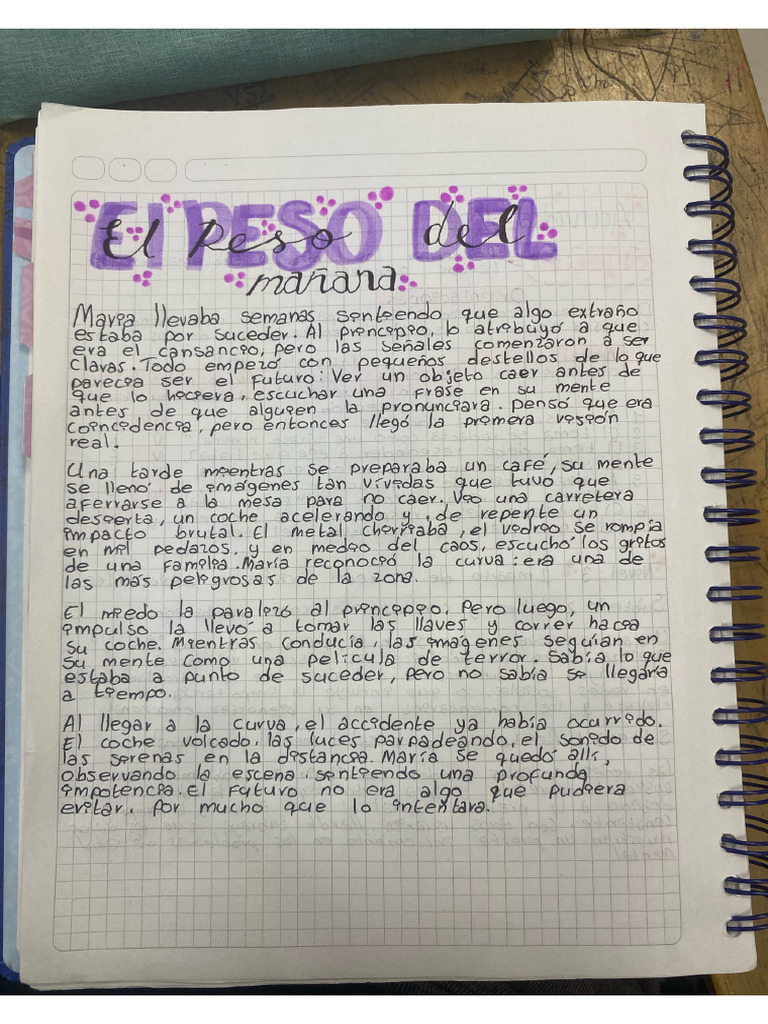 El Peso del
mañana
María llevaba semanas sintiendo que algo extraño
estaba por suceder. Al principio, lo atribuyó a que
era el cansancio, pero las señales comenzaron a ser
claras. Todo empezó con pequeños destellos de lo que
parecia ser el futuro: Ver un objeto caer antes de
que lo hiciera, escuchar una frase en su mente
antes de que alguien la pronunciara. pensó que era
coincidencia, pero entonces llegó la primera visión
real.
Una tarde mientras se preparaba un café, su mente
se llenó de imágenes tan vívidas que tuvo que
aferrarse a la mesa para no caer. Vio una carretera
desierta, un coche acelerando y, de repente un
impacto brutal. El metal chirriaba, el vidrio se rompía
en mil pedazos, y en medio del caos, escuchó los gritos
de una familia. María reconoció la curva: era una de
las más peligrosas de la zona.
El miedo la paralizó al principio. Pero luego, un
impulso la llevó a tomar las llaves y correr hacia
su coche. Mientras conducía, las imágenes seguían en
su mente como una película de terror. Sabía lo que
estaba a punto de suceder, pero no sabía si llegaría
a tiempo.
Al llegar a la curva, el accidente ya había ocurrido.
El coche volcado, las luces parpadeando, el sonido de
las sirenas en la distancia. María se quedó allí,
observando la escena, sintiendo una profunda
impotencia. El futuro no era algo que pudiera
evitar. Por mucho que lo intentara.